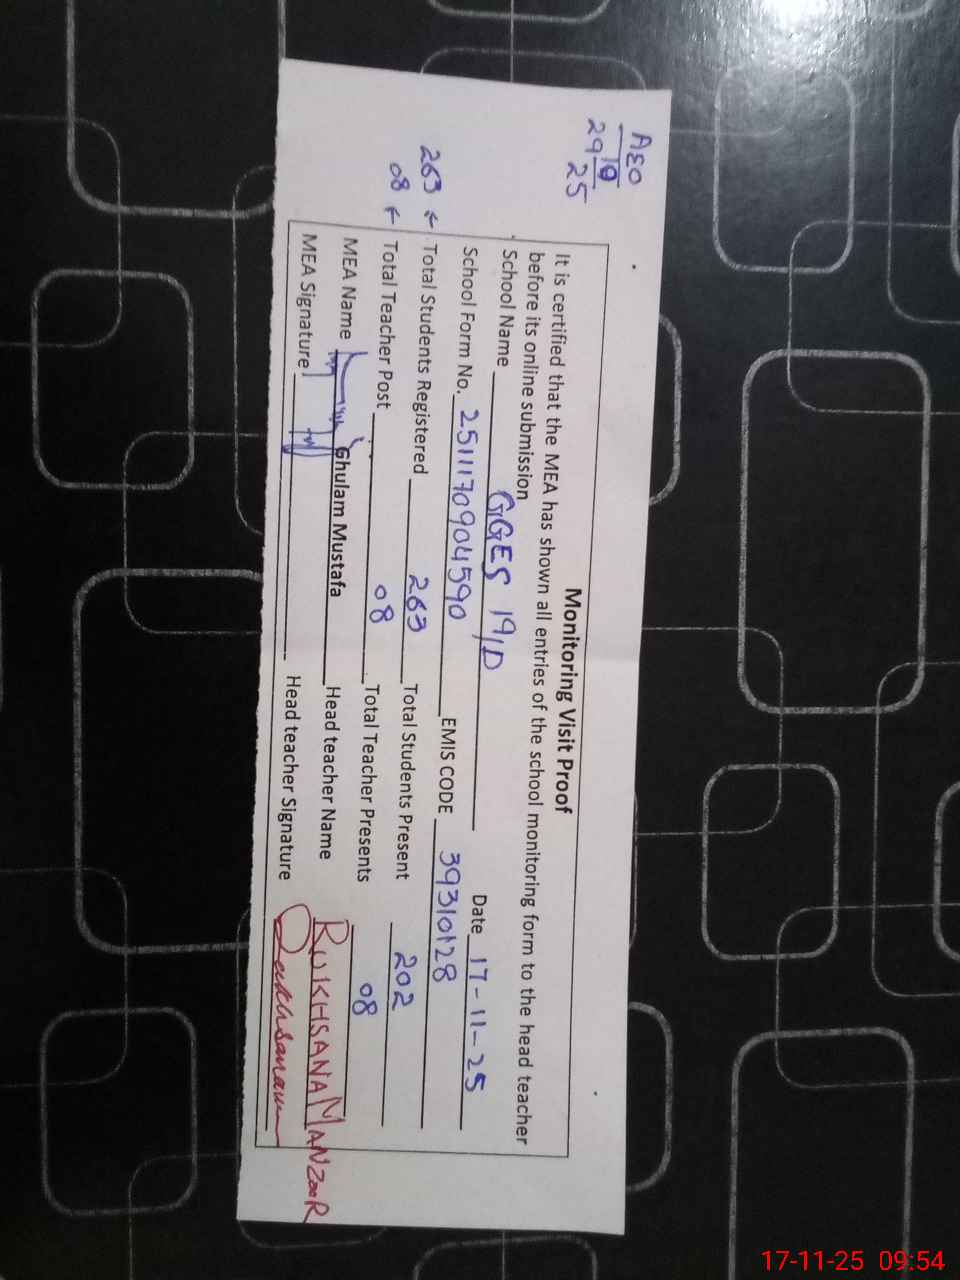 AEO
29 10 25
Monitoring Visit Proof
It is certified that the MEA has shown all entries of the school monitoring form to the head teacher
before its online submission
School Name GGES 19/D Date 17-11-25
School Form No. 2511170904590 EMIS CODE 39310128
263 ← Total Students Registered 263 Total Students Present 202
08 ← Total Teacher Post 08 Total Teacher Presents 08
MEA Name Ghulam Mustafa Head teacher Name RUKHSANA MANZOOR
MEA Signature Head teacher Signature
17-11-25 09:54